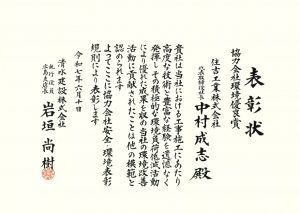 表彰状
協力会社環境優良賞
住吉工業株式会社
代表取締役社長
中村成志 殿
貴社は当社における工事施工にあたり
高度な技術と豊富な経験を遺憾なく
発揮しその積極的な環境負荷低減活動
により優れた成果を収め当社の環境改善
活動に貢献されたことは他の模範と
認められます
よってここに協力会社安全・環境表彰
規則により表彰します
令和七年六月十日
清水建設株式会社
執行役員
広島支店長
岩垣尚樹